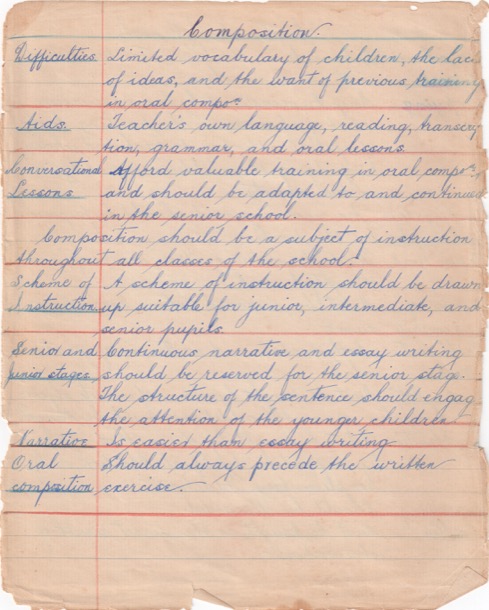 Composition.
Difficulties Limited vocabulary of children, the lack
of ideas, and the want of previous training
in oral compon.
Aids. Teacher's own language, reading, transcrip-
tion, grammar, and oral lessons.
Conversational Afford valuable training in oral compon.,
Lessons and should be adapted to and continued
in the senior school.
Composition should be a subject of instruction
throughout all classes of the school.
Scheme of A scheme of instruction should be drawn
Instruction up suitable for junior, intermediate, and
senior pupils.
Senior and Continuous narrative and essay writing
junior stages. should be reserved for the senior stage.
The structure of the sentence should engage
the attention of the younger children.
Narrative Is easier than essay writing
Oral Should always precede the written
composition exercise.